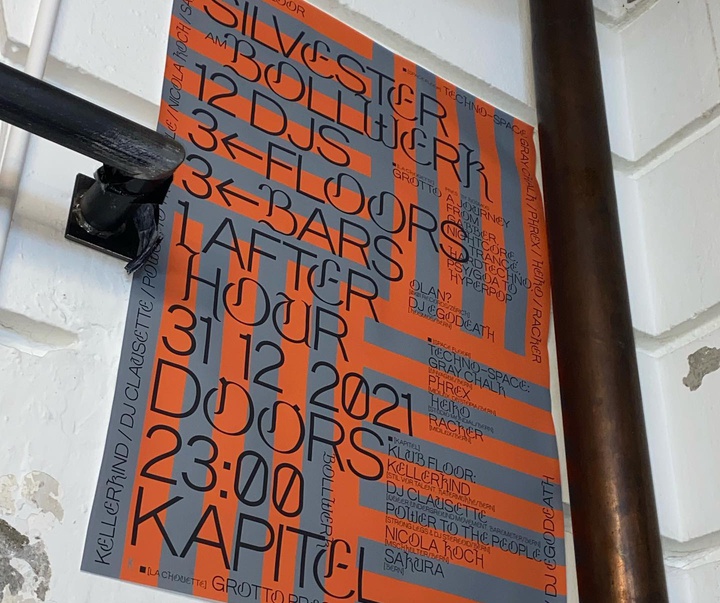 SILVESTER
AM BOLLWERK
12 DJS
3←FLOORS
3←BARS
1 AFTER
HOUR
31 12 2021
DOORS:
23:00
KAPITEL
BOLLWERK
TECHNO-SPACE
GROTTO
A JOURNEY
FROM
GABBER,
NIGHTCORE,
TRANCE,
HARDTECHNO,
PSY/GOA TO
HYPERPOP
OLAN?
DJ EGODEATH
TECHNO-SPACE:
GRAY CHALK
PHREX
HEIKO
RACKER
[KAPITEL]
KLUB FLOOR:
KELLERKIND
DJ CLAUSETTE
POWER TO THE PEOPLE
NICOLA KOCH
SAKURA
[BERN]
[LA CHOUETTE] GROTTO
KELLERKIND / DJ CLAUSETTE /
/ NICOLA KOCH /
GRAY CHALK / PHREX / HEIKO / RACKER
/ DJ EGODEATH